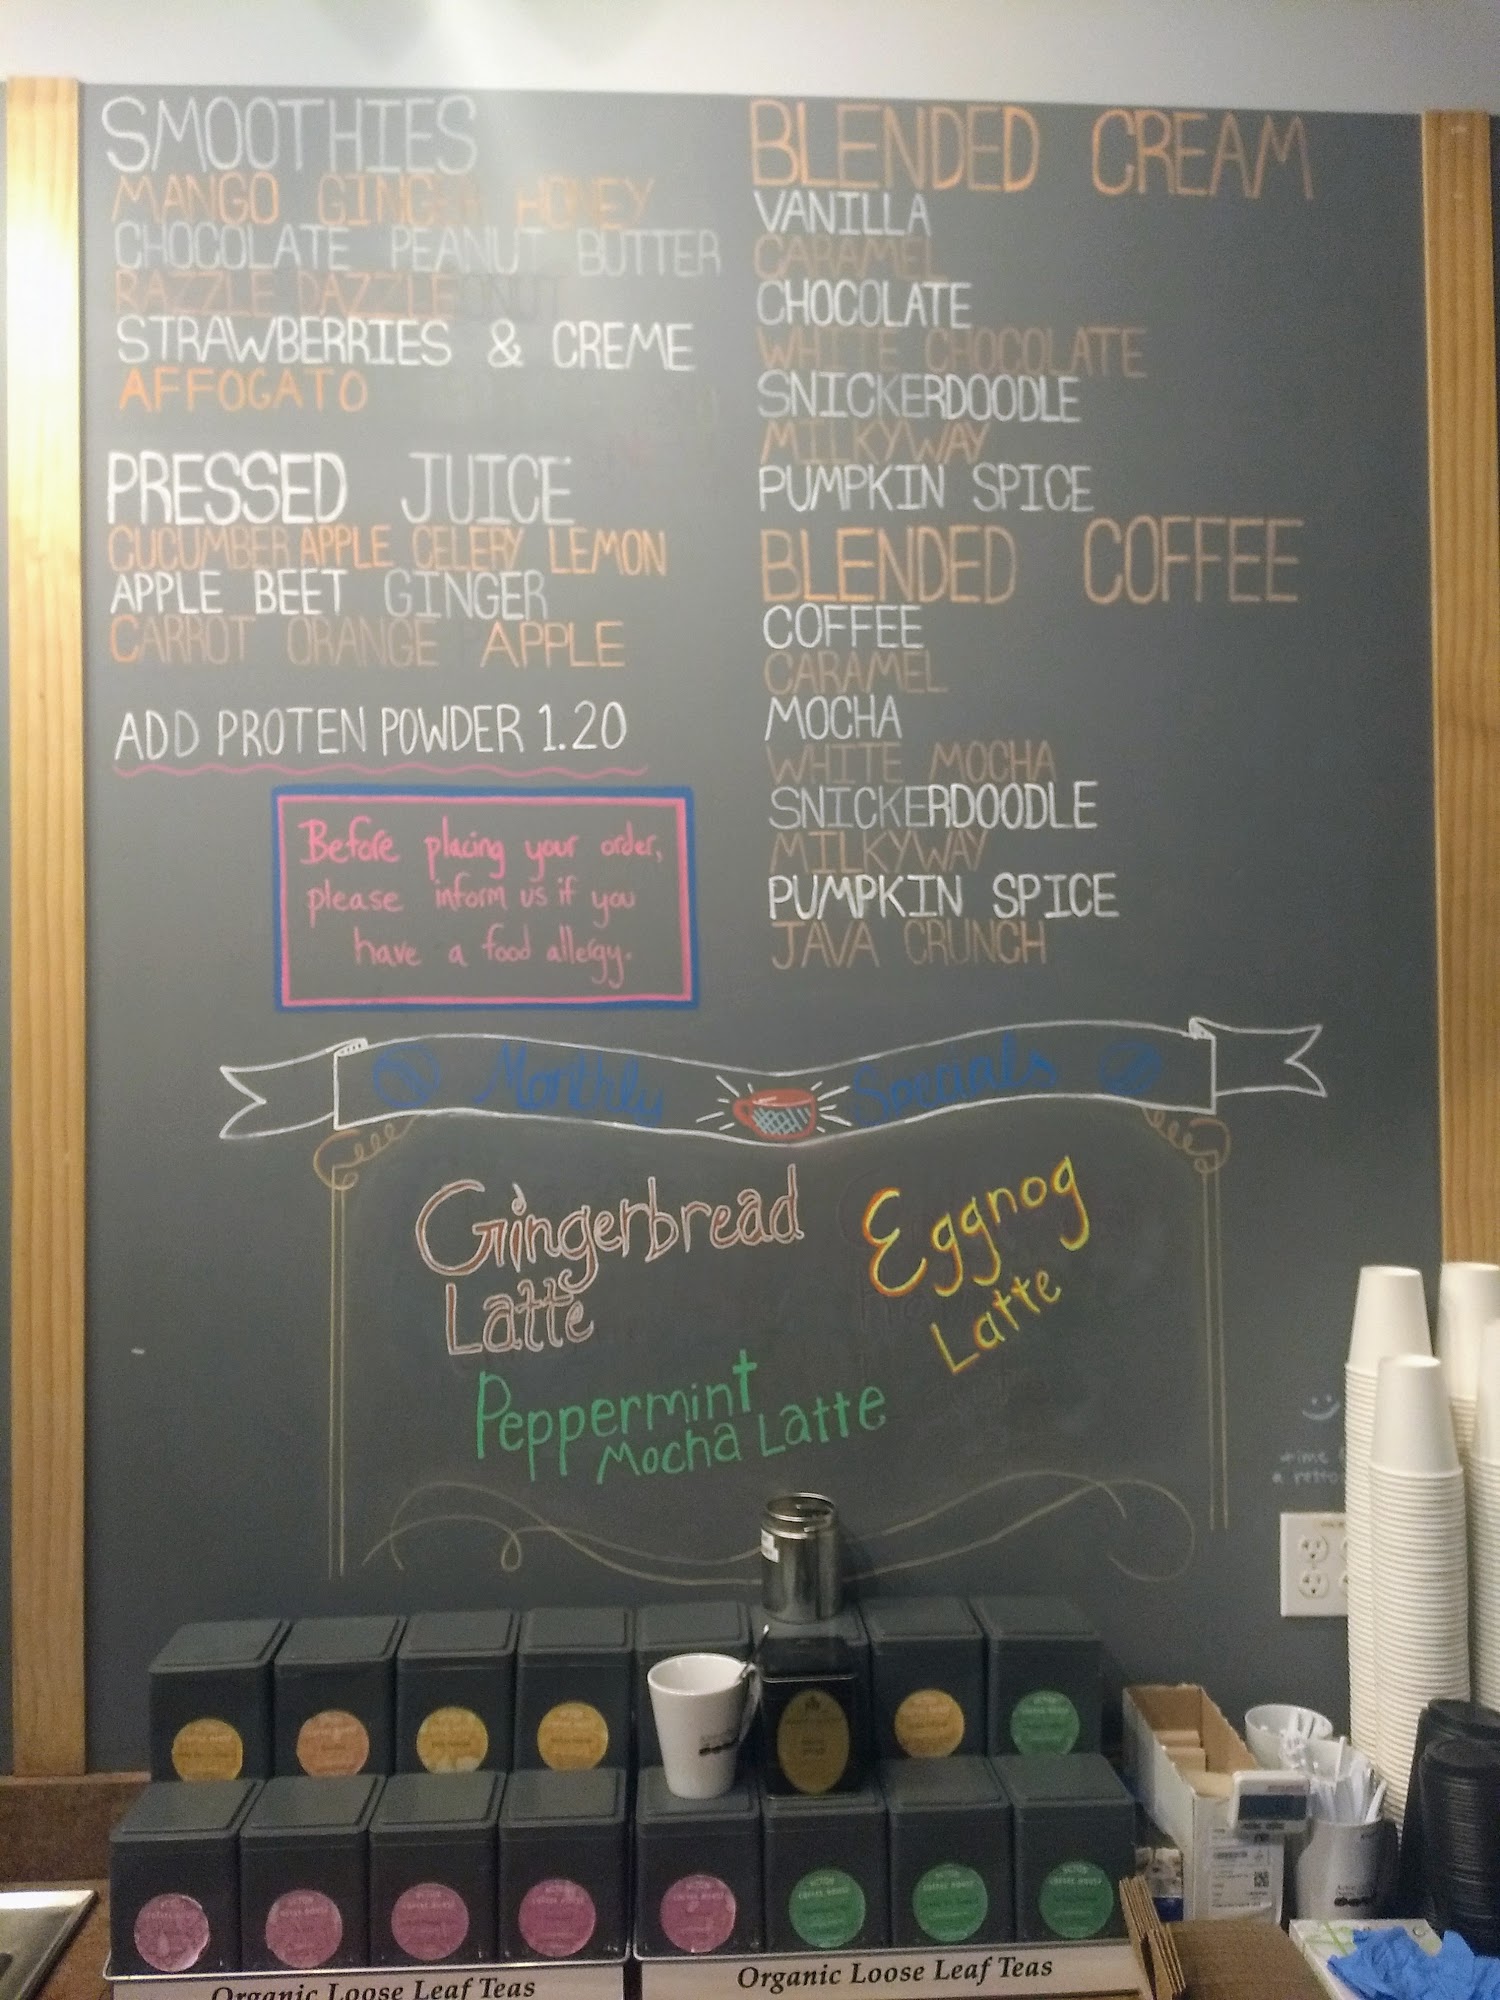 SMOOTHIES
MANGO GINGER HONEY
CHOCOLATE PEANUT BUTTER
RAZZLE DAZZLE
STRAWBERRIES & CREME
AFFOGATO
PRESSED JUICE
CUCUMBER APPLE CELERY LEMON
APPLE BEET GINGER
CARROT ORANGE APPLE
ADD PROTEN POWDER 1.20
Before placing your order,
please inform us if you
have a food allergy.
BLENDED CREAM
VANILLA
CARAMEL
CHOCOLATE
WHITE CHOCOLATE
SNICKERDOODLE
MILKYWAY
PUMPKIN SPICE
BLENDED COFFEE
COFFEE
CARAMEL
MOCHA
WHITE MOCHA
SNICKERDOODLE
MILKYWAY
PUMPKIN SPICE
JAVA CRUNCH
Monthly Specials
Gingerbread
Latte
Eggnog
Latte
Peppermint
Mocha Latte
time
a
Organic Loose Leaf Teas
Organic Loose Leaf Teas